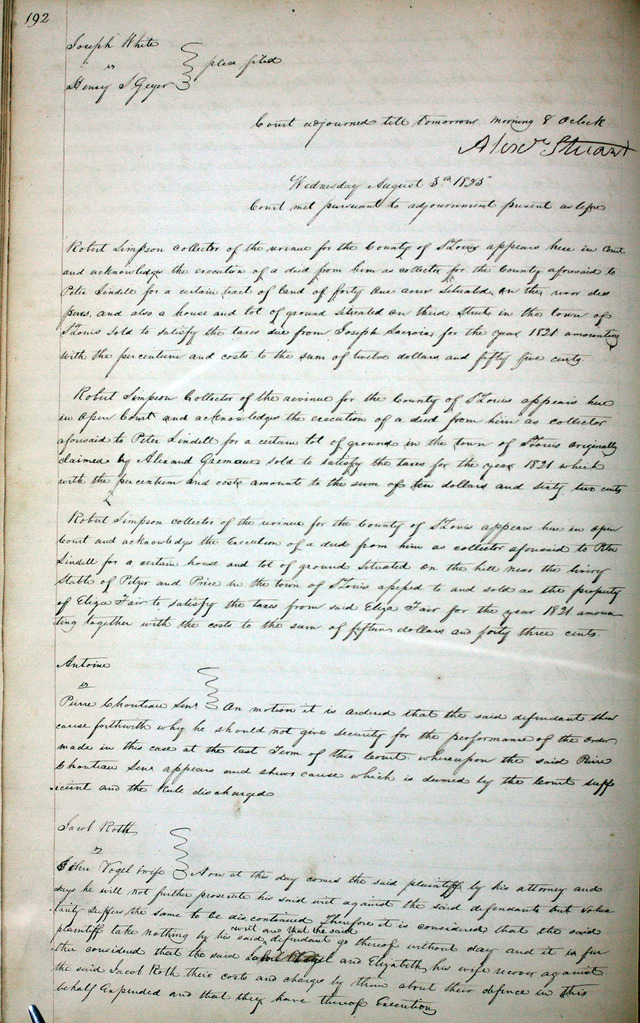 192
Joseph White
vs
Henry S Geyer } plea filed
Court adjourned till tomorrow morning 8 Oclock
Alexr Stuart
Wednesday August 3d 1825
Court met pursuant to adjournment present as before
Robert Simpson collector of the revenue for the County of St Louis appears here in Court
and acknowledges the execution of a deed from him as collector for the County aforesaid to
Peter Lindell for a certain tract of land of forty one acres situated on the river des
peres, and also a house and lot of ground situated on third Street in the town of
St Louis sold to satisfy the taxes due from Joseph Lacroix for the year 1821 amounting
with the percentum and costs to the sum of twelve dollars and fifty five cents
Robert Simpson Collector of the revinue for the County of St Louis appears here
in open Court and acknowledges the execution of a deed from him as collector
aforesaid to Peter Lindell for a certain lot of ground in the town of St Louis originally
claimed by Alexand sold to satisfy the taxes for the year 1821 which
with the percentum and costs amounts to the sum of ten dollars and sixty two cents
Robert Simpson collector of the revinue for the County of St Louis appears here in open
Court and acknowledges the Execution of a deed from him as collector aforesaid to Peter
Lindell for a certain house and lot of ground situated on the hill near the livery
Stable of and Price in the town of St Louis and sold as the property
of Eliza Fair to satisfy the taxes from said Eliza Fair for the year 1821 amoun
ting together with the costs to the sum of fifteen dollars and forty three cents.
Antoine
vs
Pierre Chouteau Senr } On motion it is ordered that the said defendant shew
cause forthwith why he should not give security for the performance of the Order
made in this case at the last Term of this Court. whereupon the said Pierre
Chouteau Senr appears and shews cause which is deemed by the Court suff
icient and the Rule discharged
Jacob Roth
vs
John Vogel & wife } Now at this day comes the said plaintiff by his attorney and
says he will not further prosecute his said writ against the said defendants but volun
tarily suffers the same to be discontinued Therefore it is considered that the said
plaintiff take nothing by his said writ and that the said defendant go thereof without day and it is fur
ther considered that the said Vogel and Elizabeth his wife recover against
the said Jacob Roth their costs and charges by them about their defence in this
behalf Expended and that they have thereof Execution